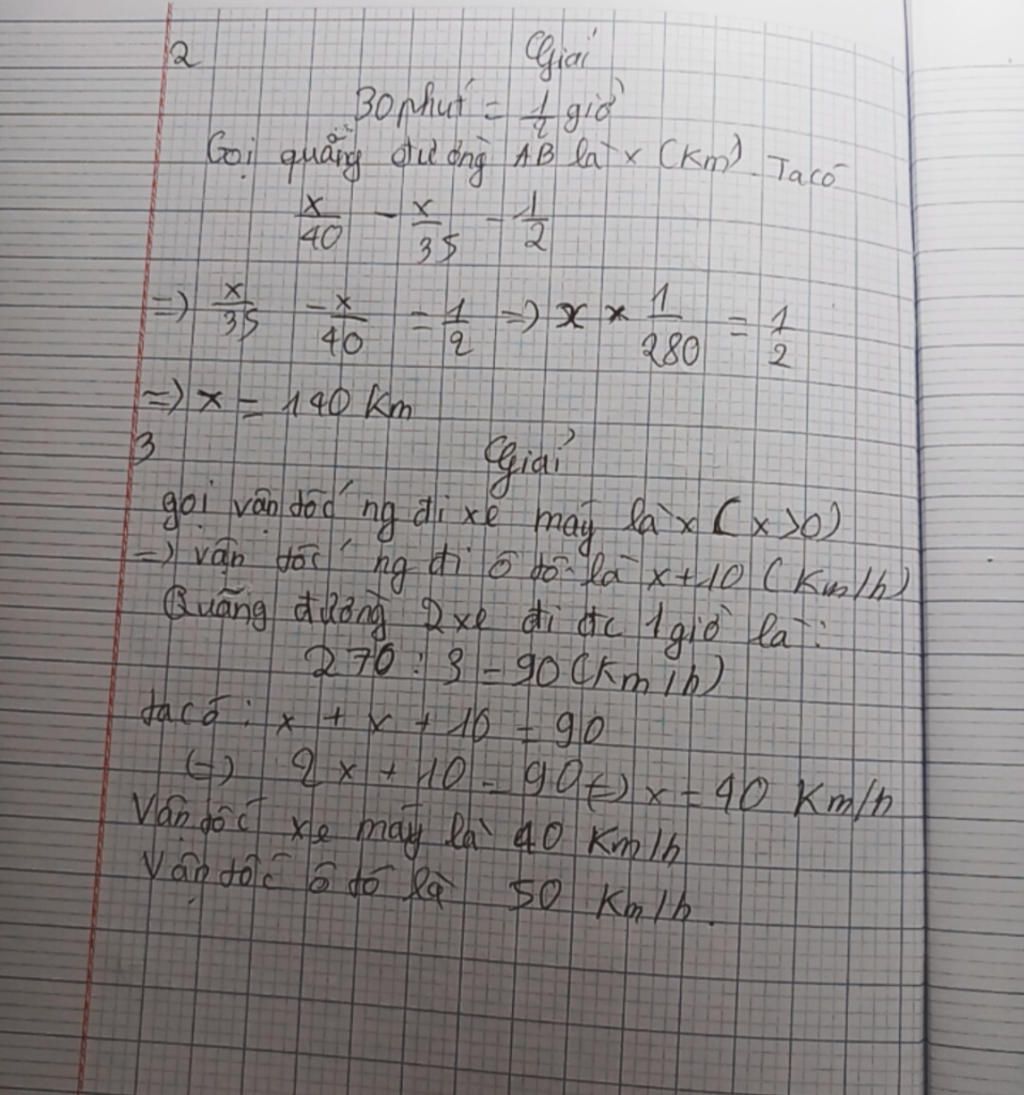 2 Giải
30 phút = 1/2 giờ
Gọi quãng đường AB là x (Km). Ta có
x/40 - x/35 - 1/2
=> x/35 - x/40 = 1/2 => x × 1/280 = 1/2
=> x = 140 Km
3 Giải
gọi vận tốc ng đi xe máy là x (x>0)
=> vận tốc ng đi ô tô là x+10 (Km/h)
Quãng đường 2 xe đi đc 1 giờ là:
270 : 3 = 90 (Km/h)
ta có: x + x + 10 = 90
(=) 2x + 10 = 90 (=) x = 40 Km/h
Vận tốc xe máy là 40 Km/h
Vận tốc ô tô là 50 Km/h.